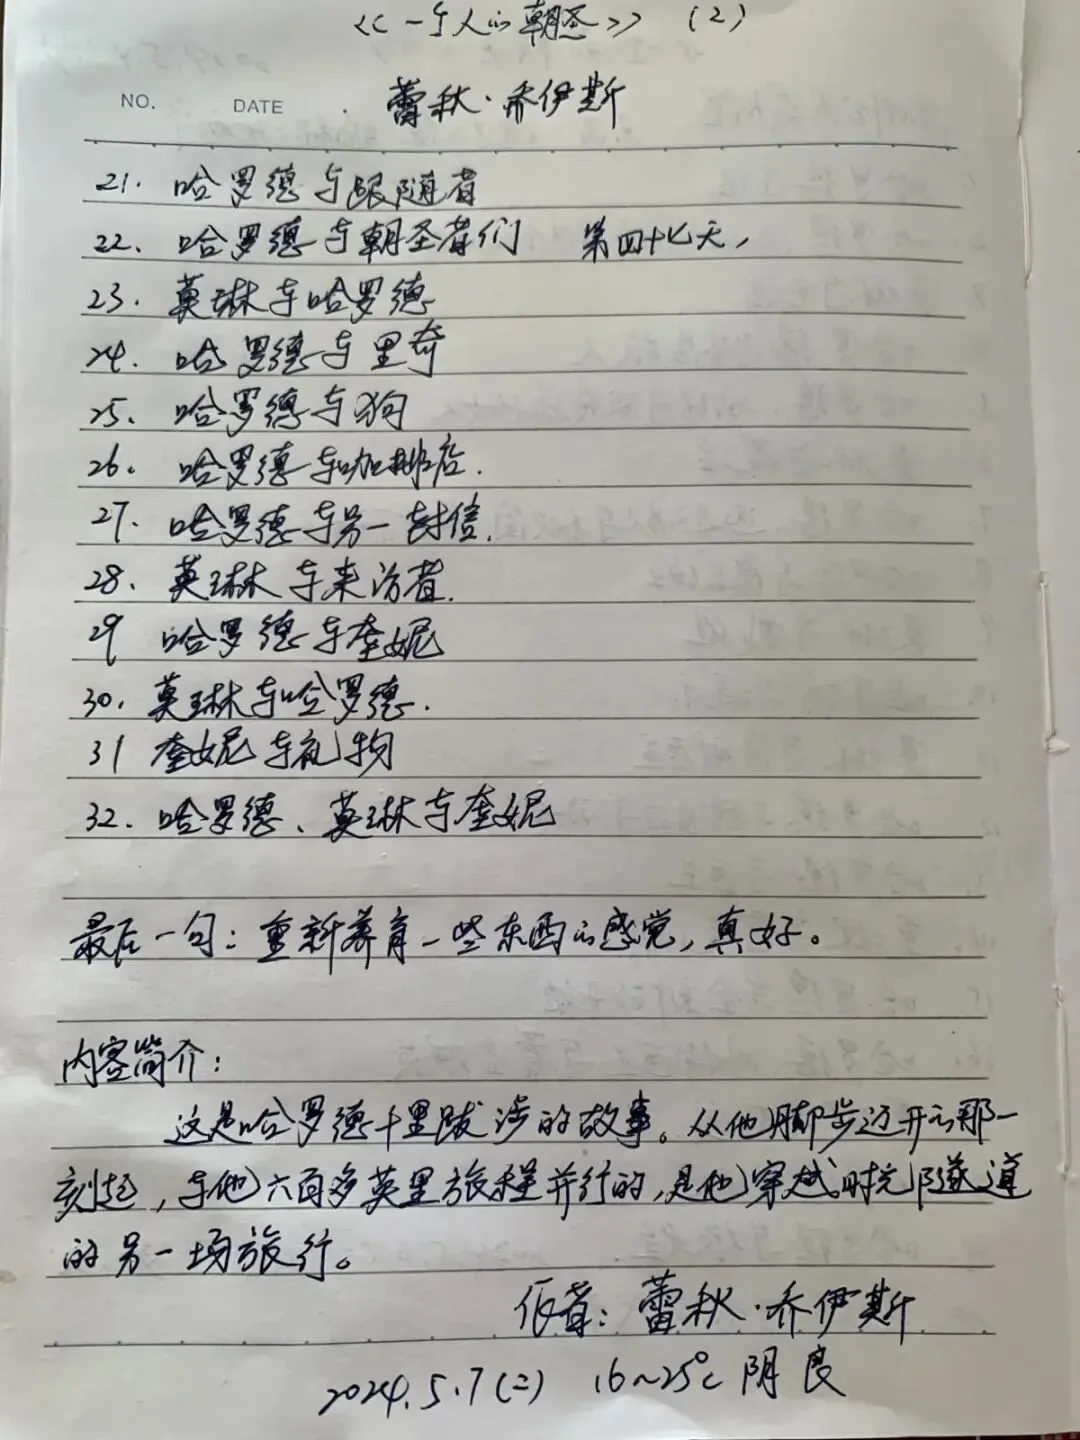 <<一个人的朝圣>> (2)
NO. DATE . 蕾秋·乔伊斯
21. 哈罗德与跟随者
22. 哈罗德与朝圣者们 第四十七天,
23. 莫琳与哈罗德
24. 哈罗德与里奇
25. 哈罗德与狗
26. 哈罗德与咖啡店.
27. 哈罗德与另一封信.
28. 莫琳与来访者.
29 哈罗德与奎妮
30. 莫琳与哈罗德.
31 奎妮与礼物
32. 哈罗德、莫琳与奎妮
最后一句: 重新养育一些东西的感觉, 真好。
内容简介:
这是哈罗德千里跋涉的故事。从他脚步迈开的那一
刻起, 与他六百多英里旅程并行的, 是他穿越时光隧道
的另一场旅行。
作者: 蕾秋·乔伊斯
2024.5.7(二) 16~25℃ 阴 良